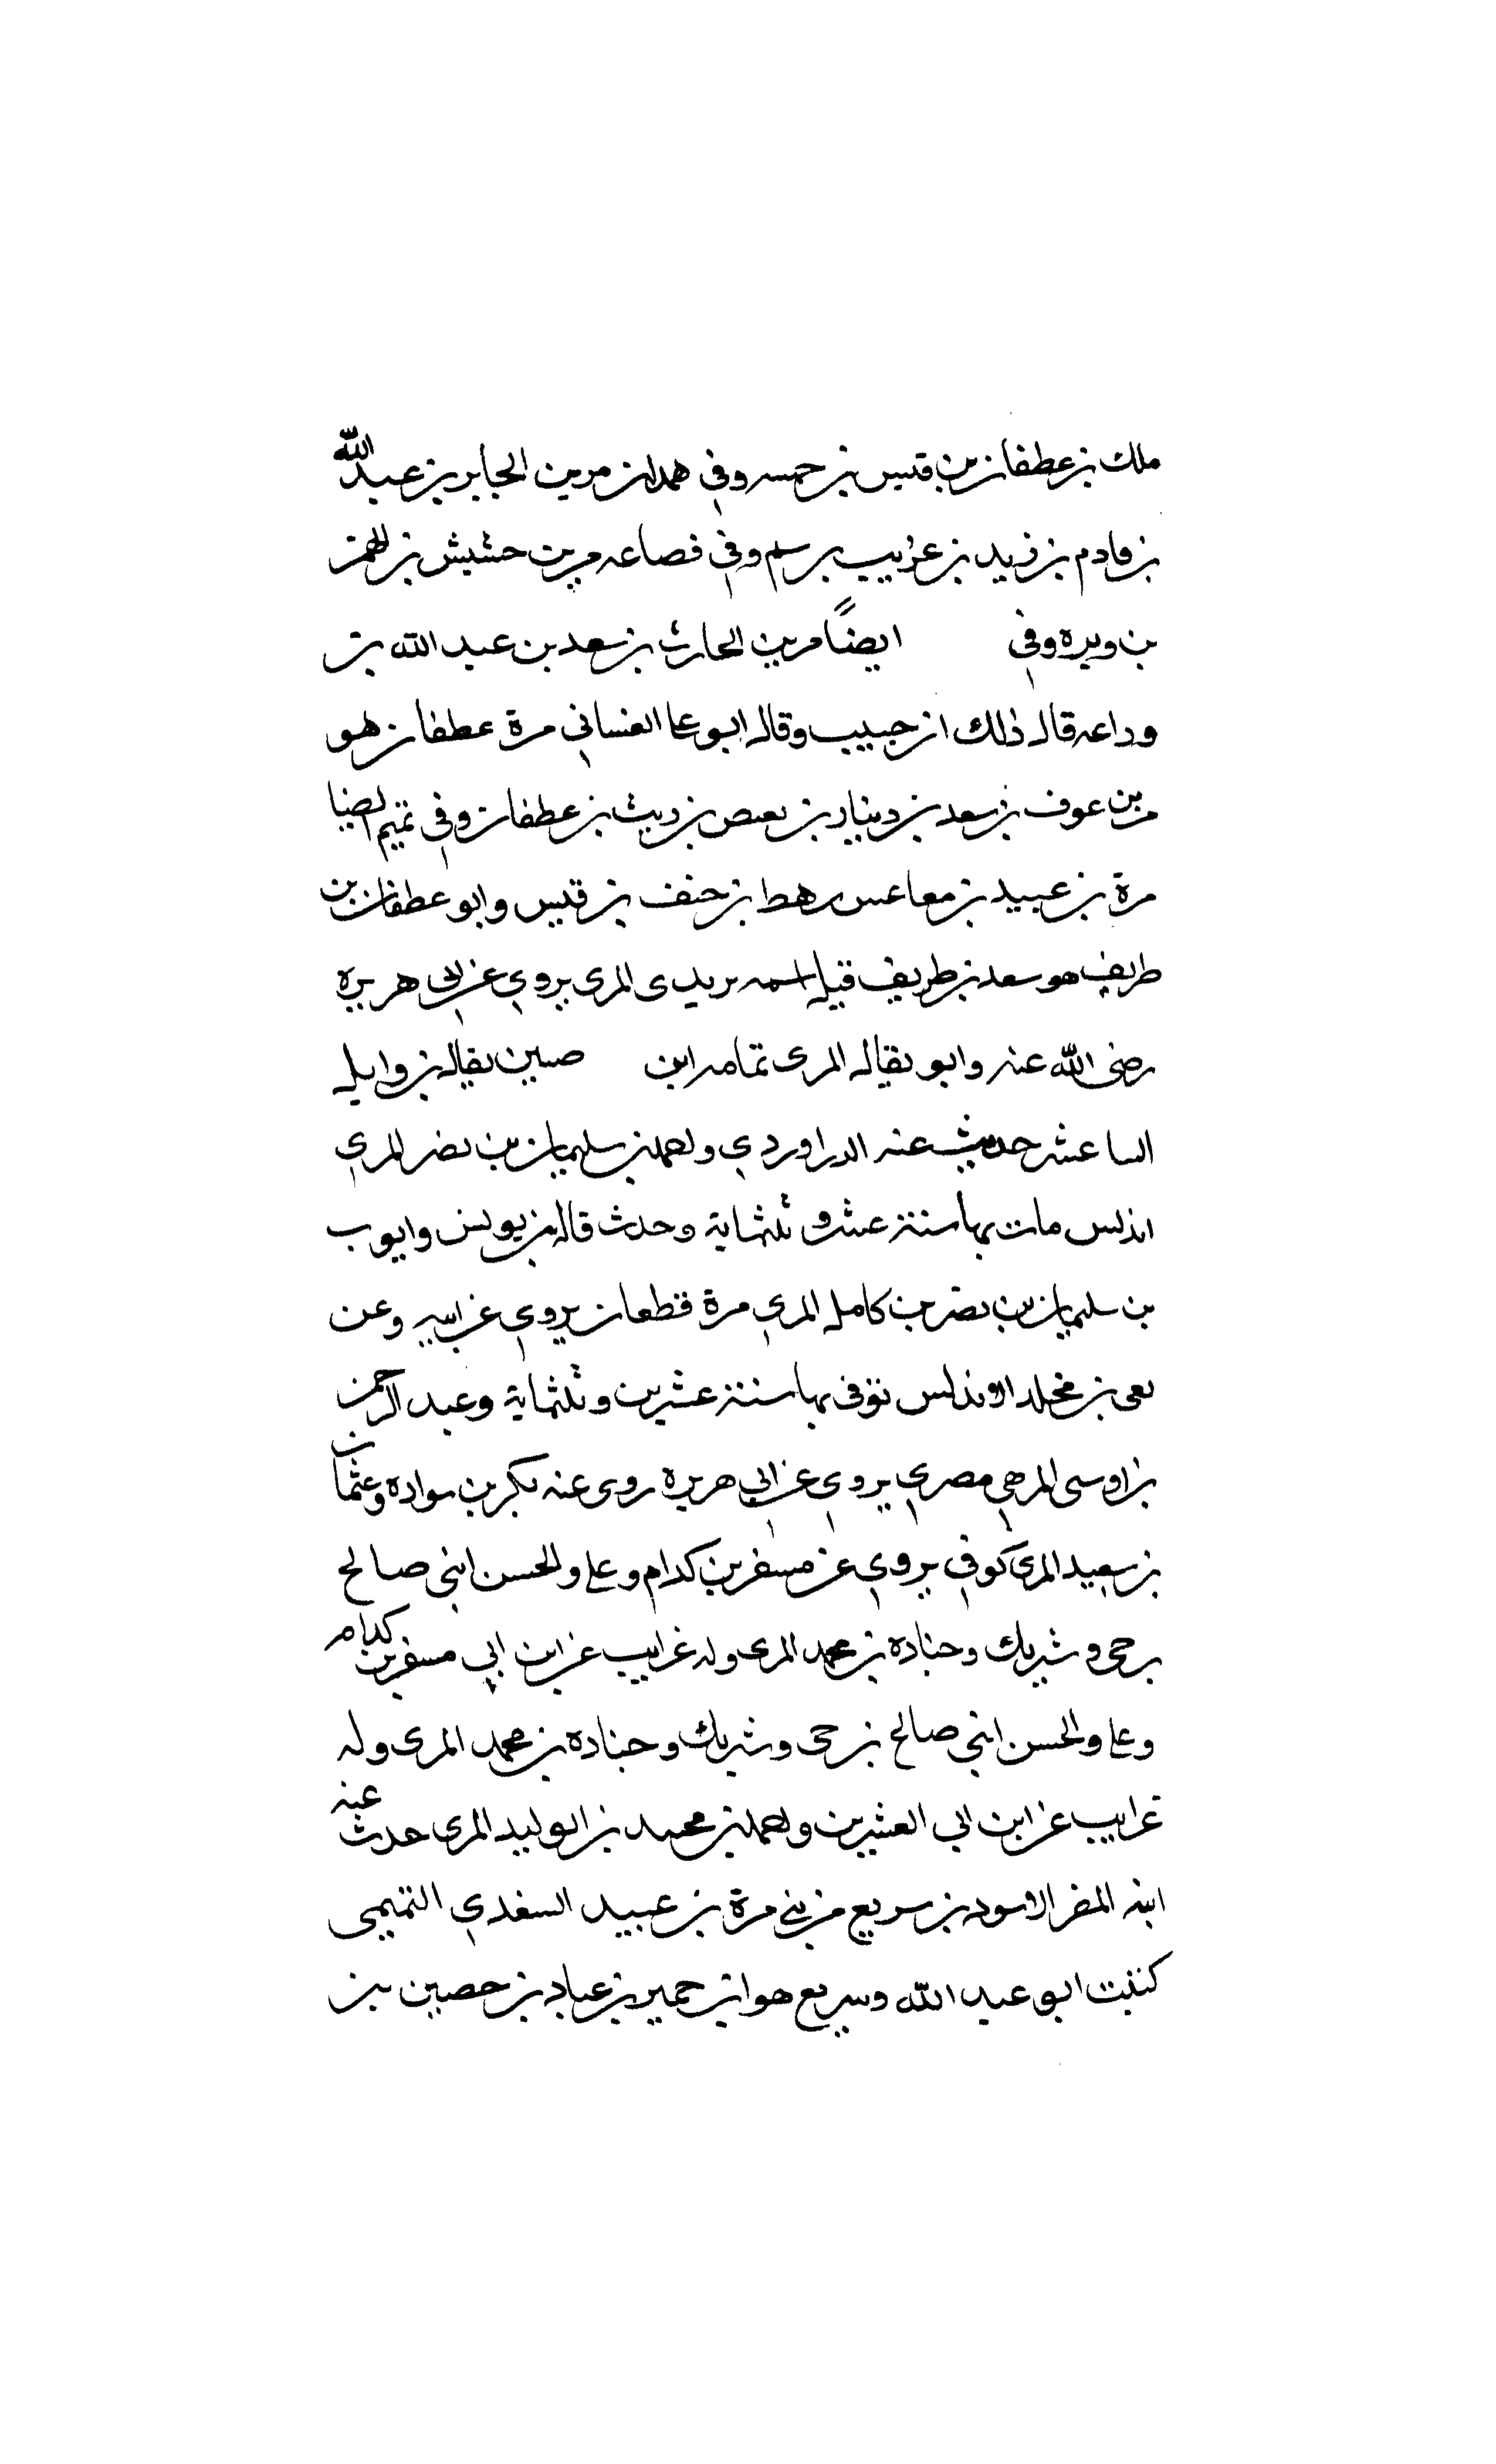 ملك بن عطفان بن قيس بن حمسه وفي همدان مر بن الجابر بن عبد الله
بن قادم بن زيد بن عريب بر سم وفي قصاعه مر بن حشيش بن النمر
بن وبره وفي ايضاً مر بن الحارث بن سعد بن عبد الله بن
وداعه قال ذلك ابن حبيب وقال ابو علي الغساني مرة عطفان هو
مر بن عوف بن سعد بن دينار بن بعيص بن ريث بن عطفان وفي تميم ايضا
مرة بن عبيد بن معاعس رهط بن حنف بن قيس وابو عطفان بن
طريف هو سعد بن طريف قيل اسمه يزيد المري يروي عن ابي هريرة
رضي الله عنه وابو ثقال المرى ثمامه ابن حصين ثقال بن وايل
الساعشر حديث عنه الدراوردي واحمد بن سليمان بن نصر المري
اندلس مات بها سنة عشر وثلثماية وحدث قال بن يونس وايوب
بن سليمان بن نصر بن كامل المري مرة قطعان يروي عن ابيه وعن
بقى بن مخلد الاندلس توفى بها سنة عشرين وثلثماية وعبد الرحمن
بن اوسى المرهي مصري يروي عن ابي هريرة روى عنه بكر بن سواده وعثمان
بن سعيد المري كوفي يروي عن مسعر بن كدام وعلي والحسن ابني صالح
بر حى وشريك وجناده بن محمد المرى وله غرايب عن ابن ابي مسعر بن كدام
وعلي والحسن ابني صالح بن حى وشريك وجناده بن محمد المرى وله
غرايب عن ابن ابي العشرين واحمد بن محمد بن الوليد المرى حدث عنه
ابنه المفر الاسود بن سريع من بني مرة بن عبيد السعدي التميمي
كنيت ابو عبد الله وسريع هو ابن حمير بن عباد بن حصين بن